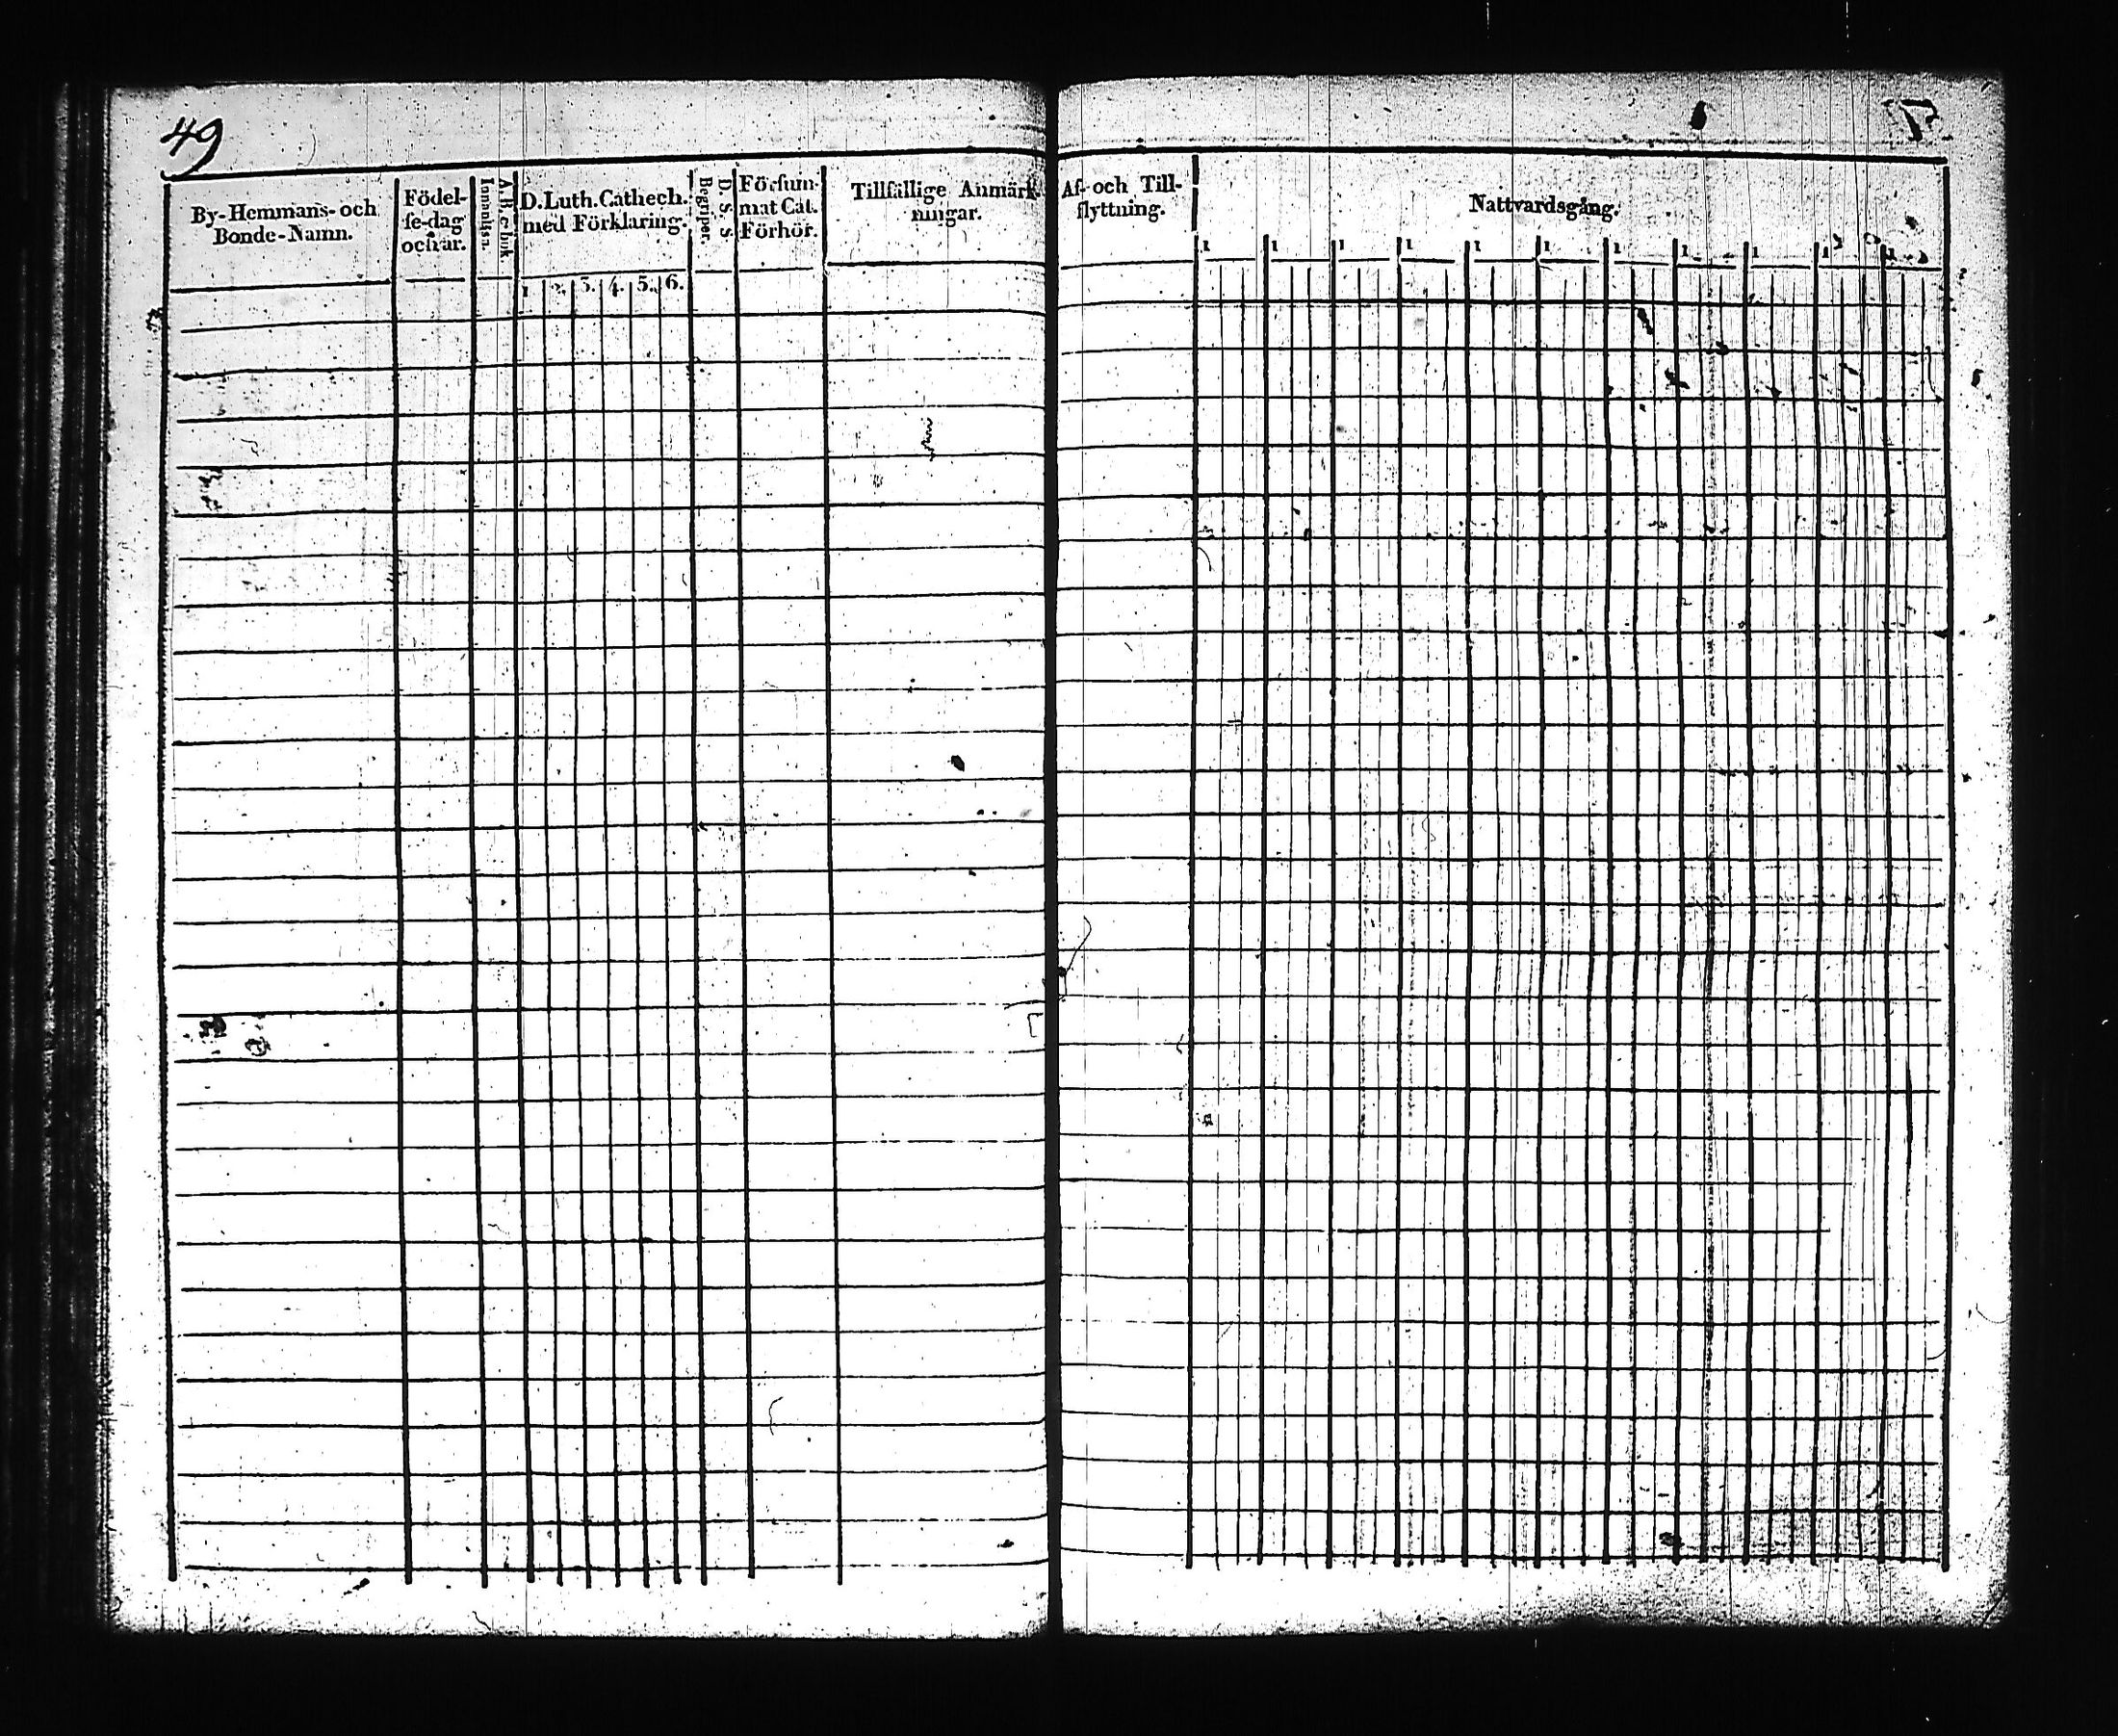 49
By-Hemmans- och
Bonde-Namn.
Födel-
se-dag
och år.
A B c-bok
Innanläsn.
D. Luth. Cathech.
med Förklaring.
1. 2. 3. 4. 5. 6.
D. S. S.
Begriper.
Försum-
mat Cat.
Förhör.
Tillfällige Anmärk-
ningar.
Af- och Till-
flyttning.
Nattvardsgång.
1 1 1 1 1 1 1 1 1 1 1